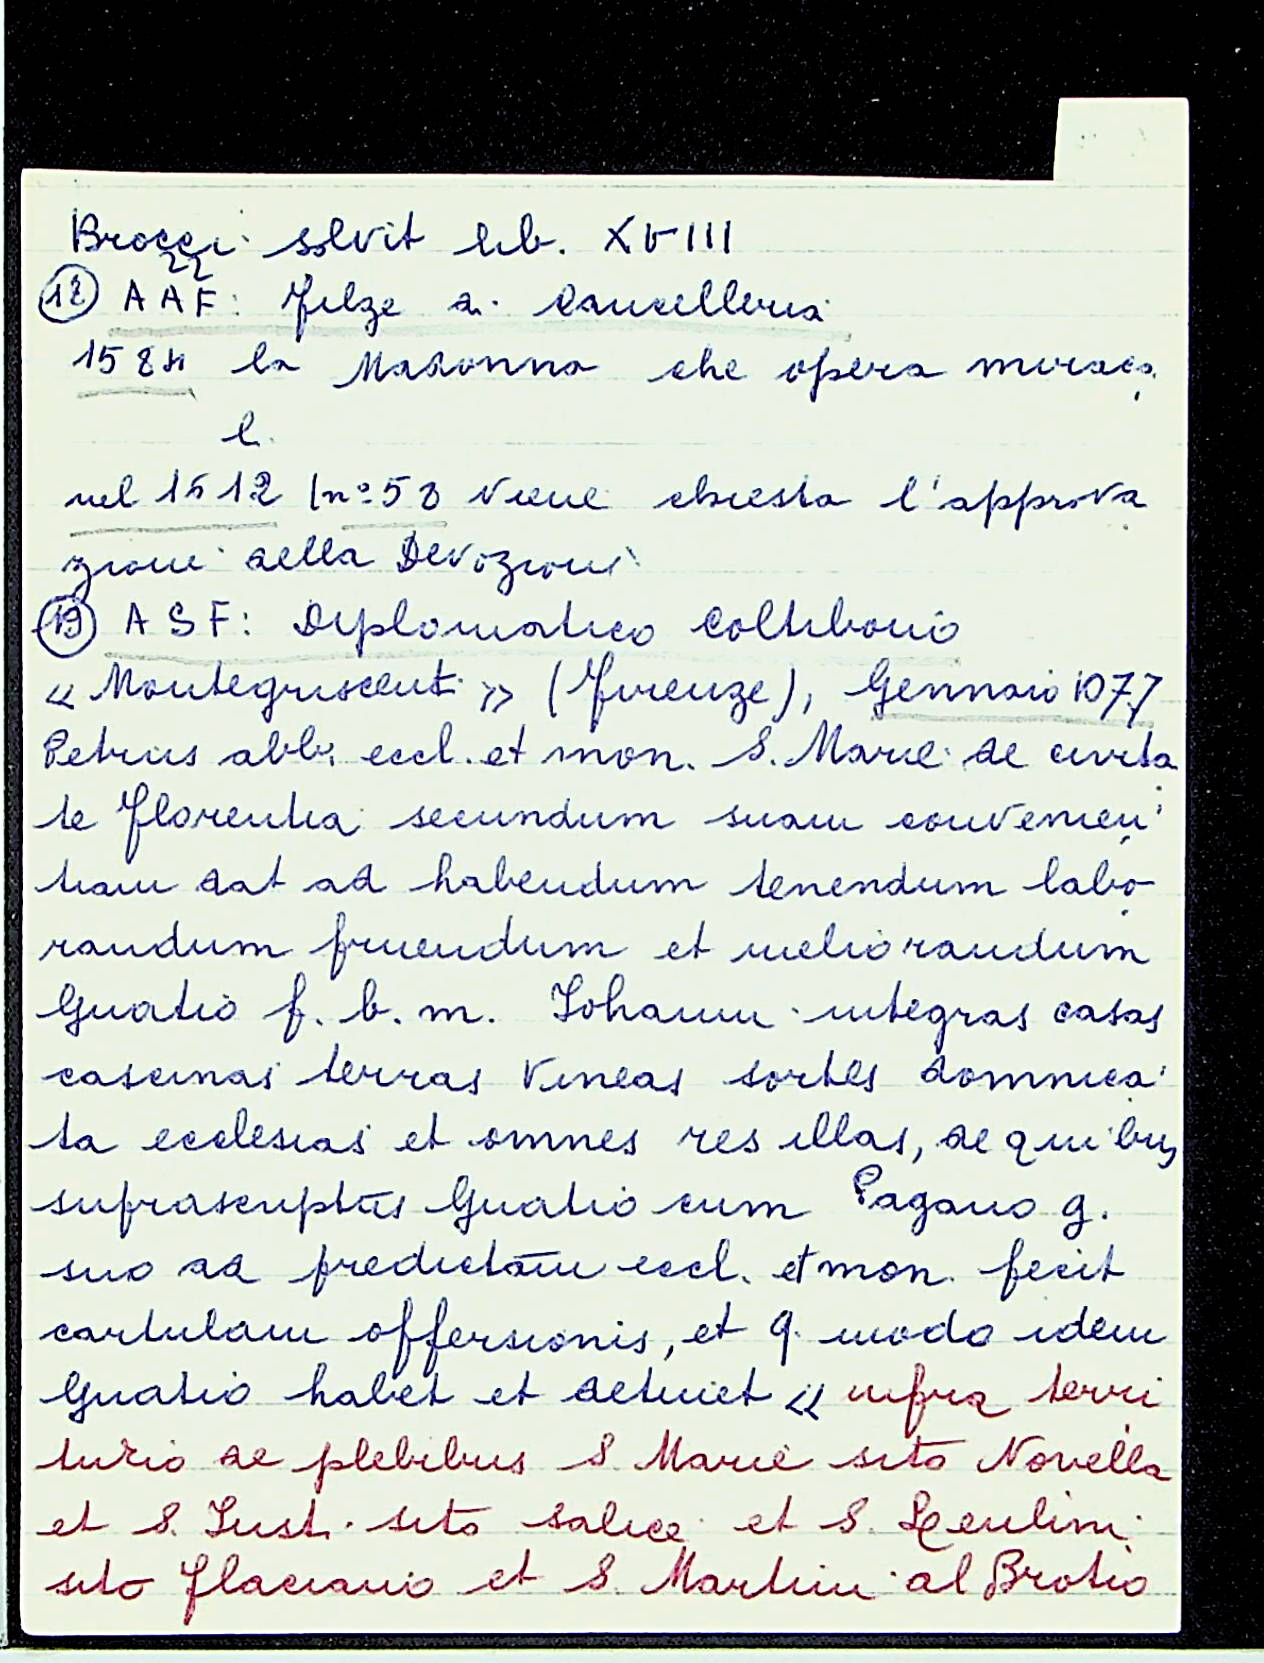 Brocci solvit lib. XVIII
zz
12 AAF: Filze di Cancelleria
1584 la Madonna che opera miraco
li.
nel 1512 (n° 53 viene chiesta l'approva
zione della Devozioni
13 ASF: Diplomatico Coltibono
« Montegriscenti » (Firenze), Gennaio 1077
Petrus abb. eccl. et mon. S. Marie de civita
te Florentia secundum suam convenien
tiam dat ad habendum tenendum labo
randum fruendum et meliorandum
Guatio f. b. m. Iohanni integras casas
cascinas terras vineas sortes domnica
ta ecclesias et omnes res illas, de quibus
suprascriptus Guatio cum Pagano g.
suo ad predictam eccl. et mon. fecit
cartulam offersionis, et q. modo idem
Guatio habet et detinet « infra terri
turio de plebibus S. Marie sito Novella
et S. Iusti sito Salice et S. Leulini
sito Flaciano et S. Martini al Brotio